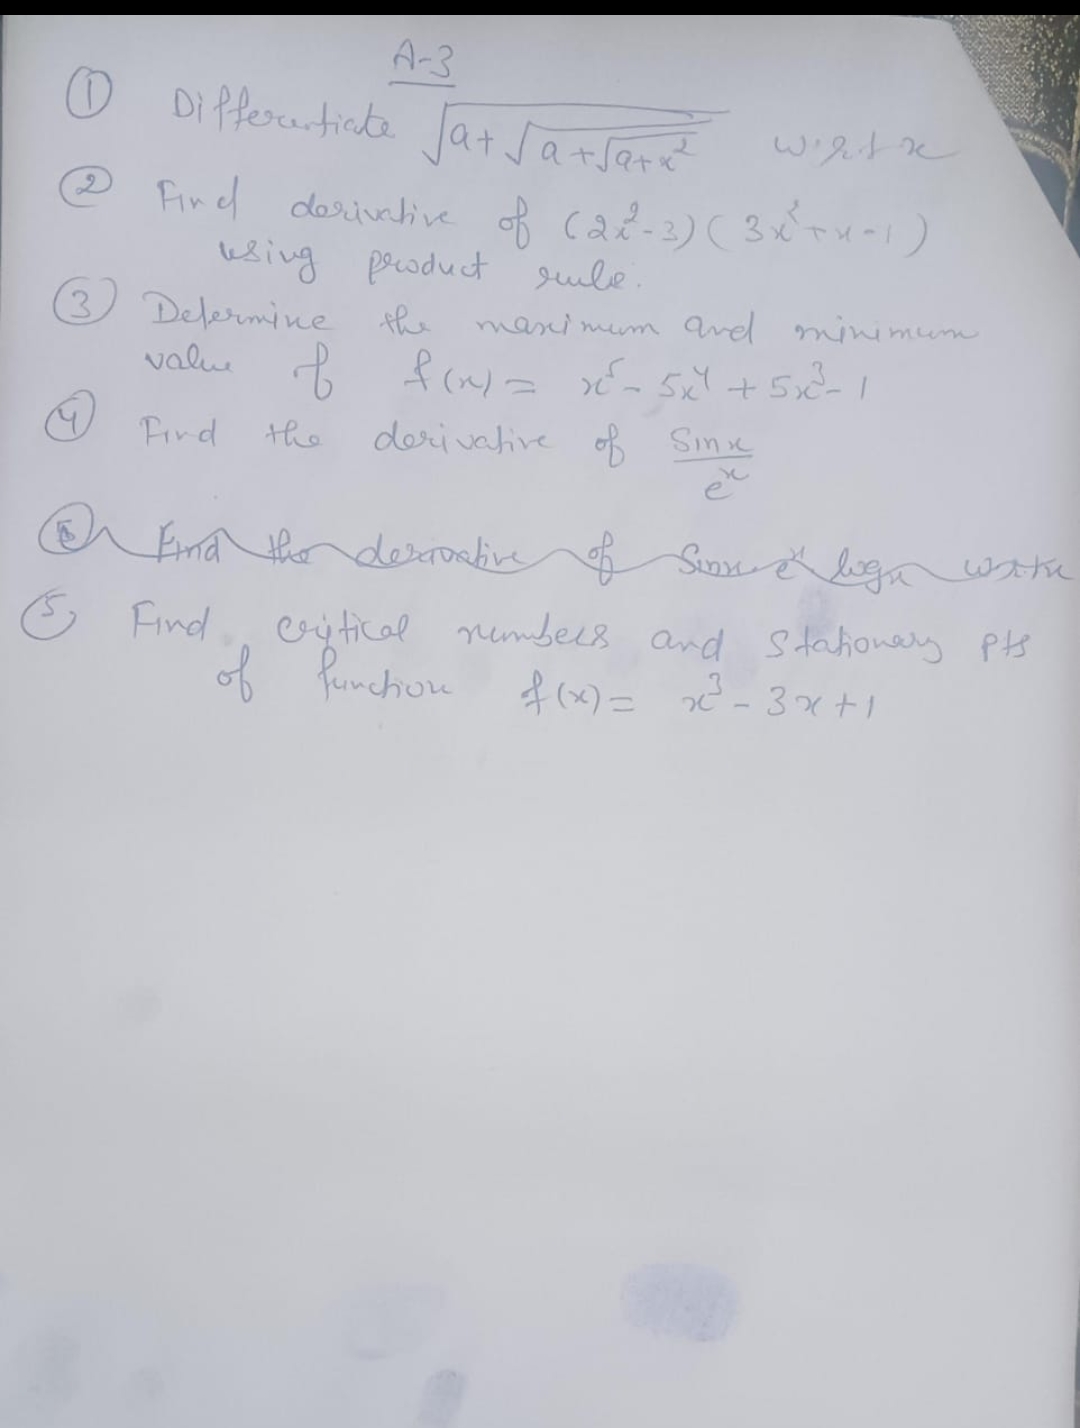 A-3
① Differentiate √(a+√(a+√(a+x²))) w.r.t x
② Find derivative of (2x²-3)(3x²+x-1)
using product rule.
③ Determine the maximum and minimum
value of f(x) = x⁵ - 5x⁴ + 5x³ - 1
④ Find the derivative of Sinx/eˣ
Find the derivative of Sinx eˣ logx w.r.t x
⑤ Find critical numbers and Stationary pts
of function f(x) = x³ - 3x + 1